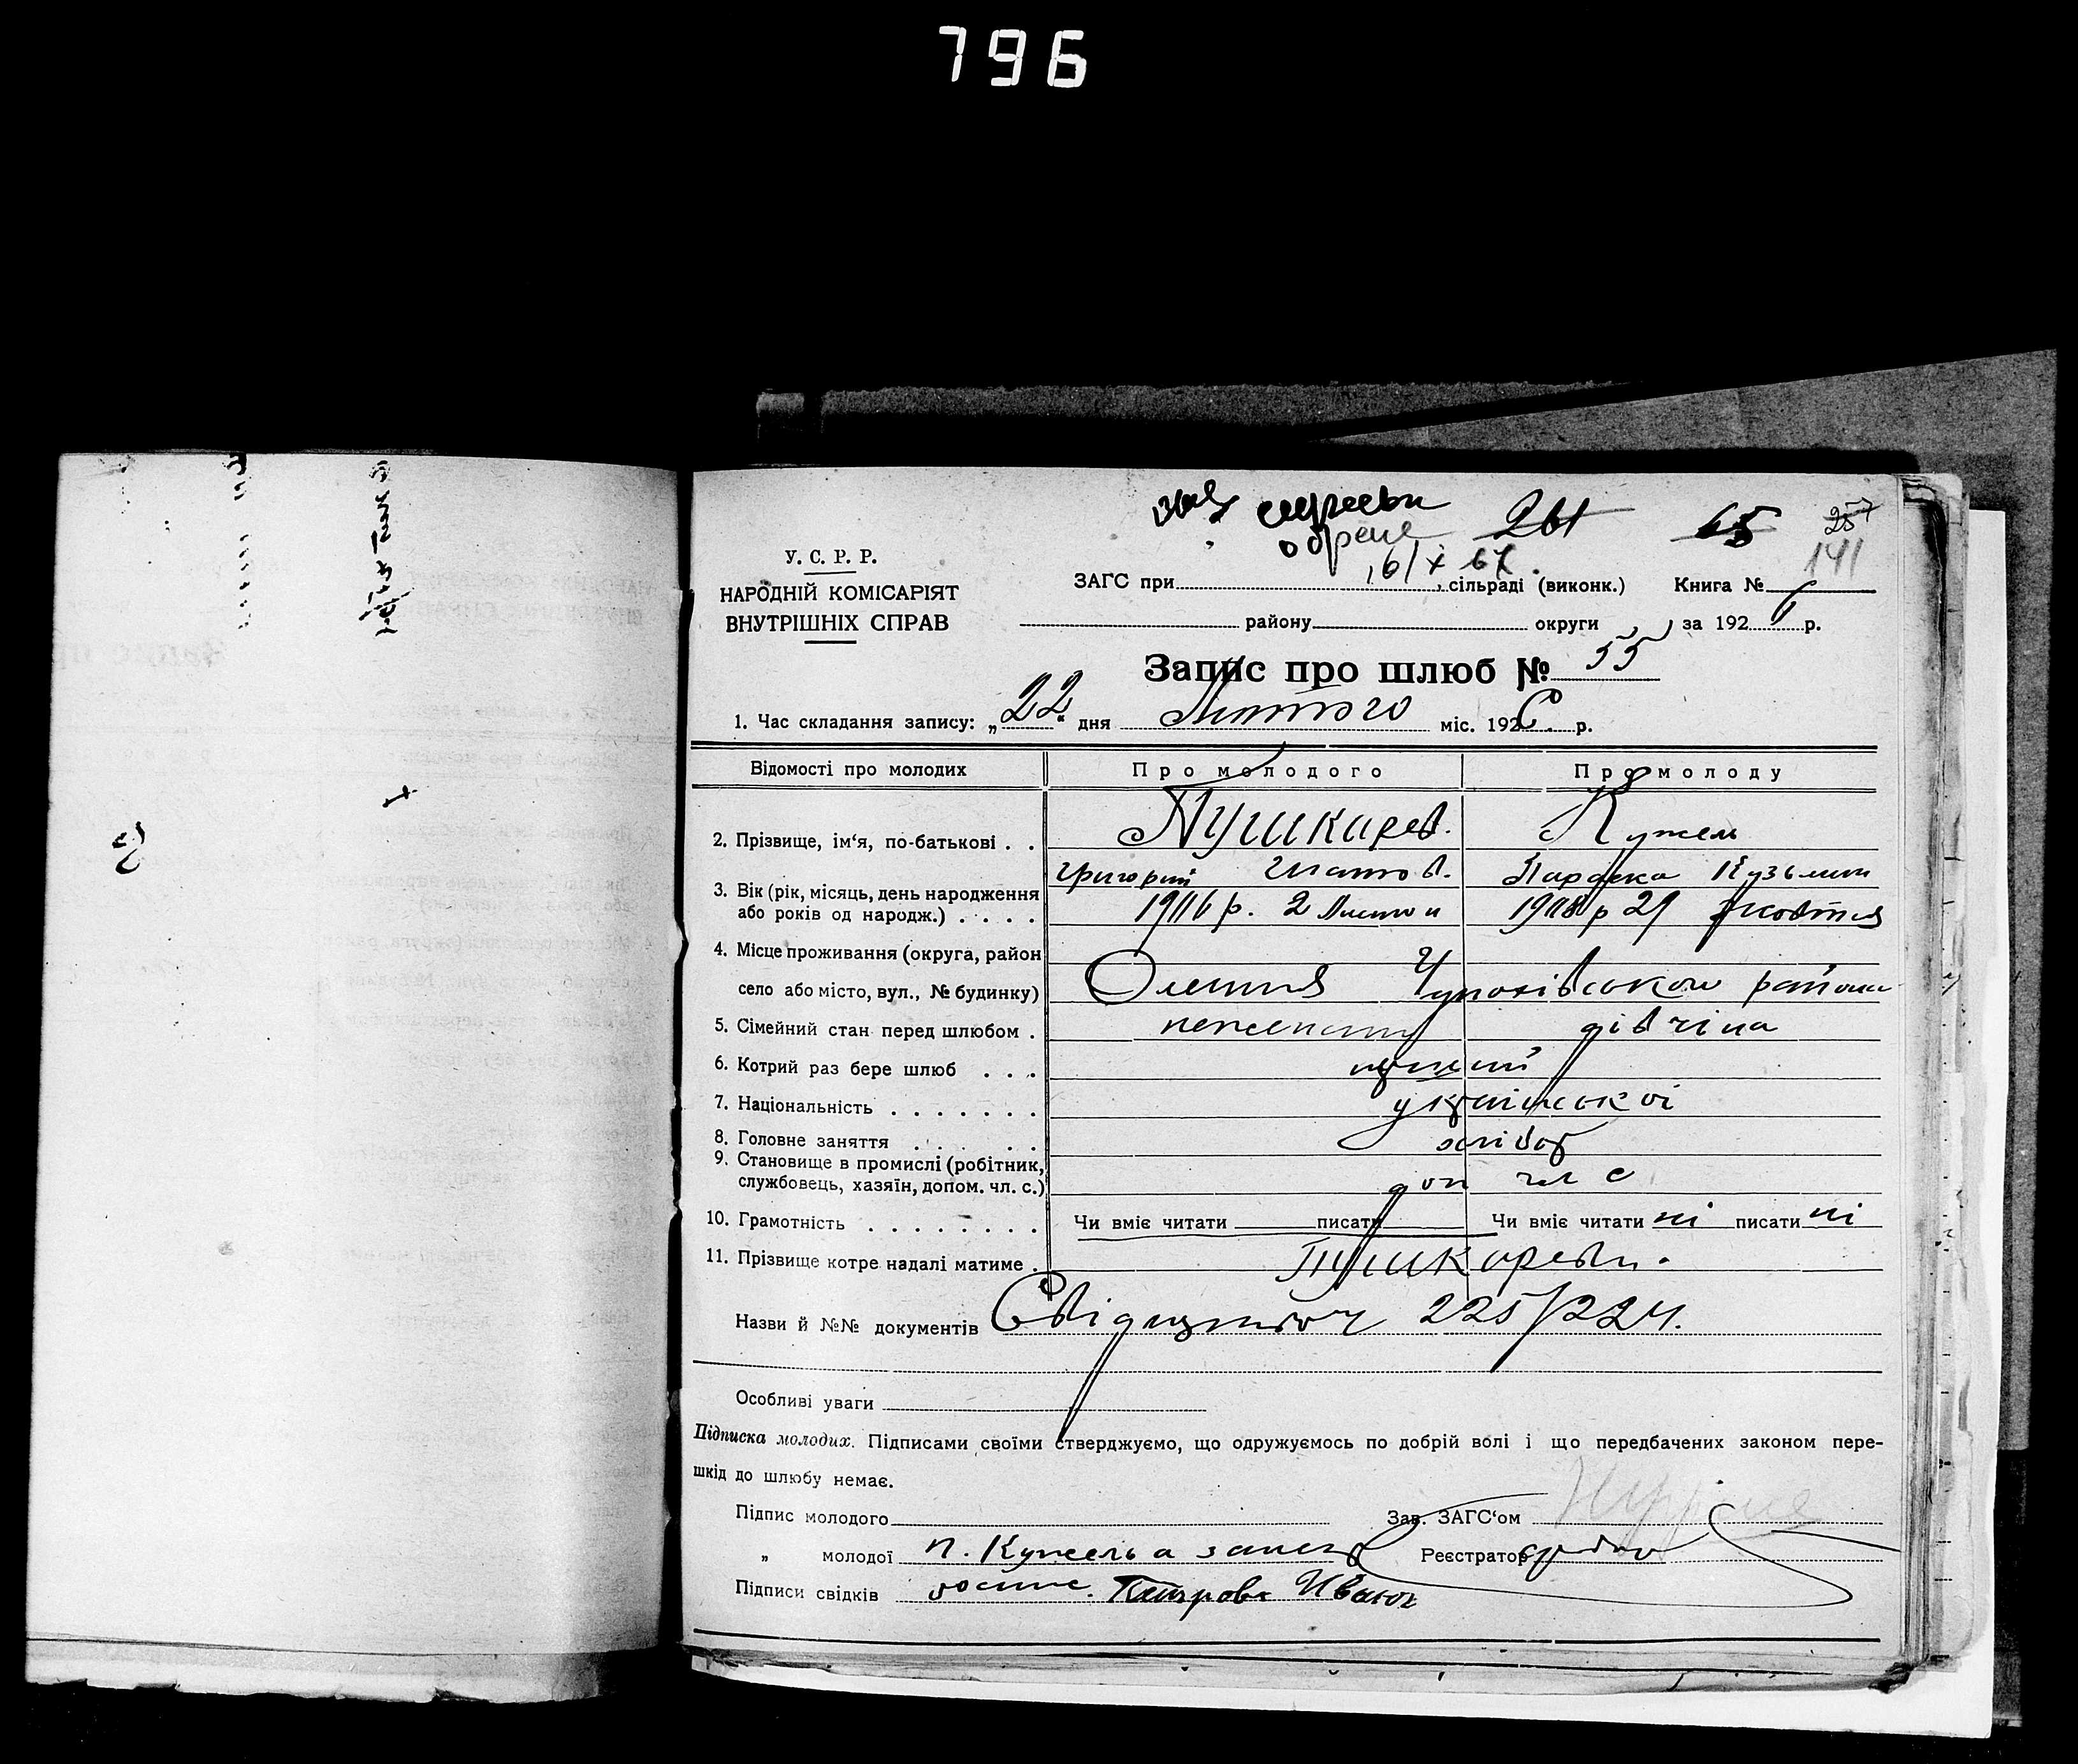 796
261 65 257
141
У. С. Р. Р.
НАРОДНІЙ КОМІСАРІЯТ
ВНУТРІШНІХ СПРАВ
ЗАГС при сільраді (виконк.) Книга №
району округи за 1926 р.
Запис про шлюб № 55
1. Час складання запису: „22“ дня Лютого міс. 1926 р.
Відомості про молодих Про молодого Про молоду
2. Прізвище, ім‘я, по-батькові . . Пушкарев. Кужель
Григорий Игатов. Параска Кузьмин
3. Вік (рік, місяць, день народження
або років од народж.) . . . . 1906 р. 2 1908 р 29 жовтня
4. Місце проживання (округа, район
село або місто, вул., № будинку) району
5. Сімейний стан перед шлюбом . дівчина
6. Котрий раз бере шлюб . . . перший
7. Національність . . . . . . . української
8. Головне заняття . . . . . хлібор
9. Становище в промислі (робітник,
службовець, хазяїн, допом. чл. с.) доп чл с
10. Грамотність . . . . . . . . Чи вміє читати писати Чи вміє читати ні писати ні
11. Прізвище котре надалі матиме . Пушкареви.
Назви й №№ документів 225/224.
Особливі уваги
Підписка молодих. Підписами своїми стверджуємо, що одружуємось по добрій волі і що передбачених законом пере-
шкід до шлюбу немає.
Підпис молодого Зав. ЗАГС‘ом
„ молодої п. Кужель а за Реєстратор
Підписи свідків